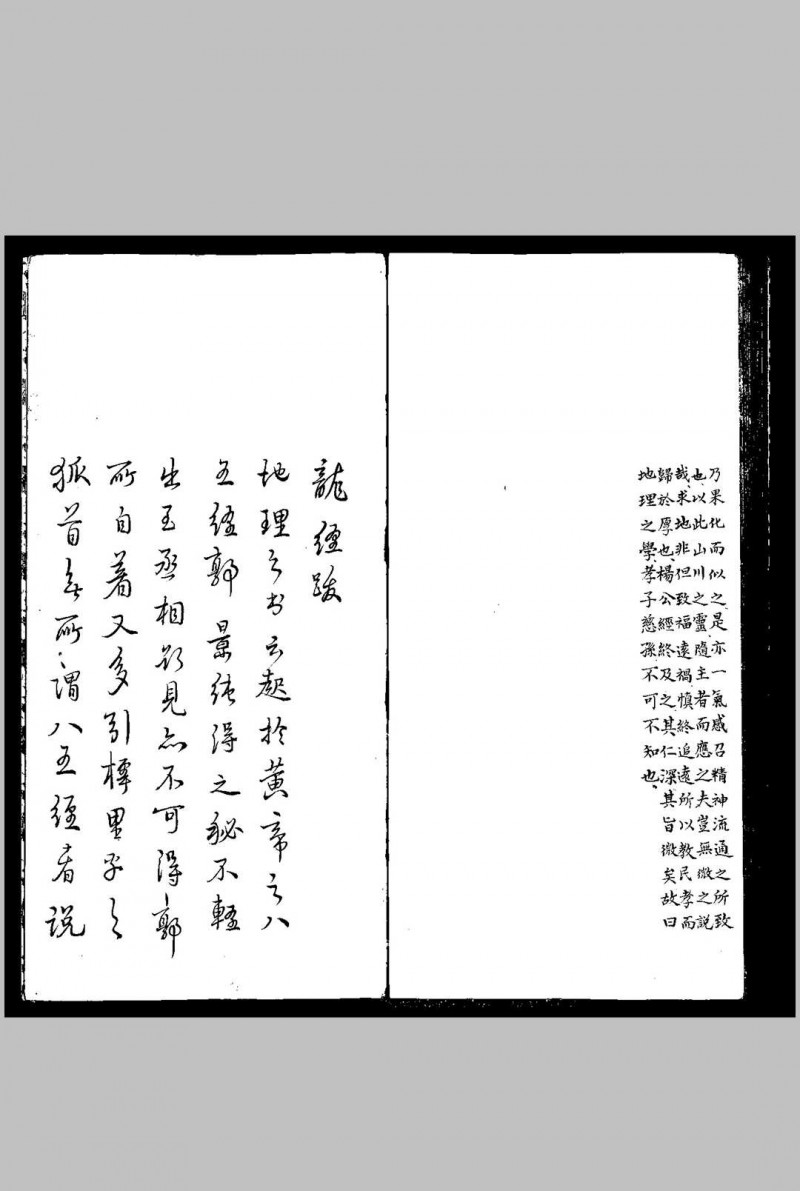 乃果化而似之是亦一氣感召精神流通之所致
也以此山川之靈隨主者而應之夫豈無微之說
哉求地非但致福遠禍慎終追遠所以教民孝而
歸於厚也楊公經終及之其仁深其旨微矣故曰
地理之學孝子慈孫不可不知也
龍經跋
地理之書云起於黃帝之八
五經郭景純得之秘不輕
出王丞相欲見亦不可得郭
所自著又多引樗里子之
狐首無所謂八五經者說